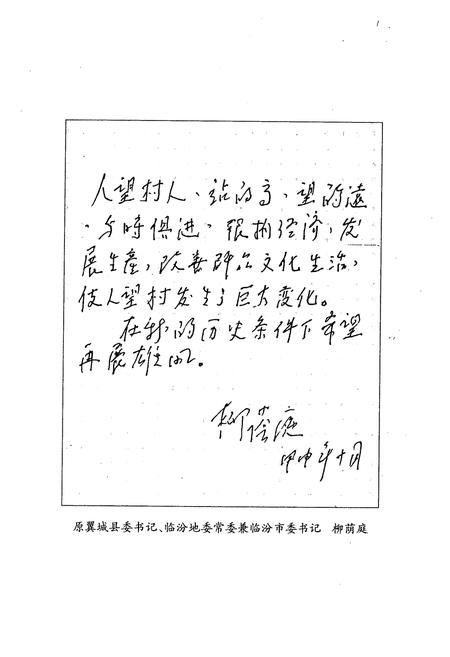 人望村人、站的高、望的遠
、与時俱進、狠抓经济，发
展生產，改善群众文化生活，
使人望村发生了巨大变化。
在新的历史条件下希望
再展雄风。
柳荫庭
甲申年十月
原翼城县委书记、临汾地委常委兼临汾市委书记 柳荫庭